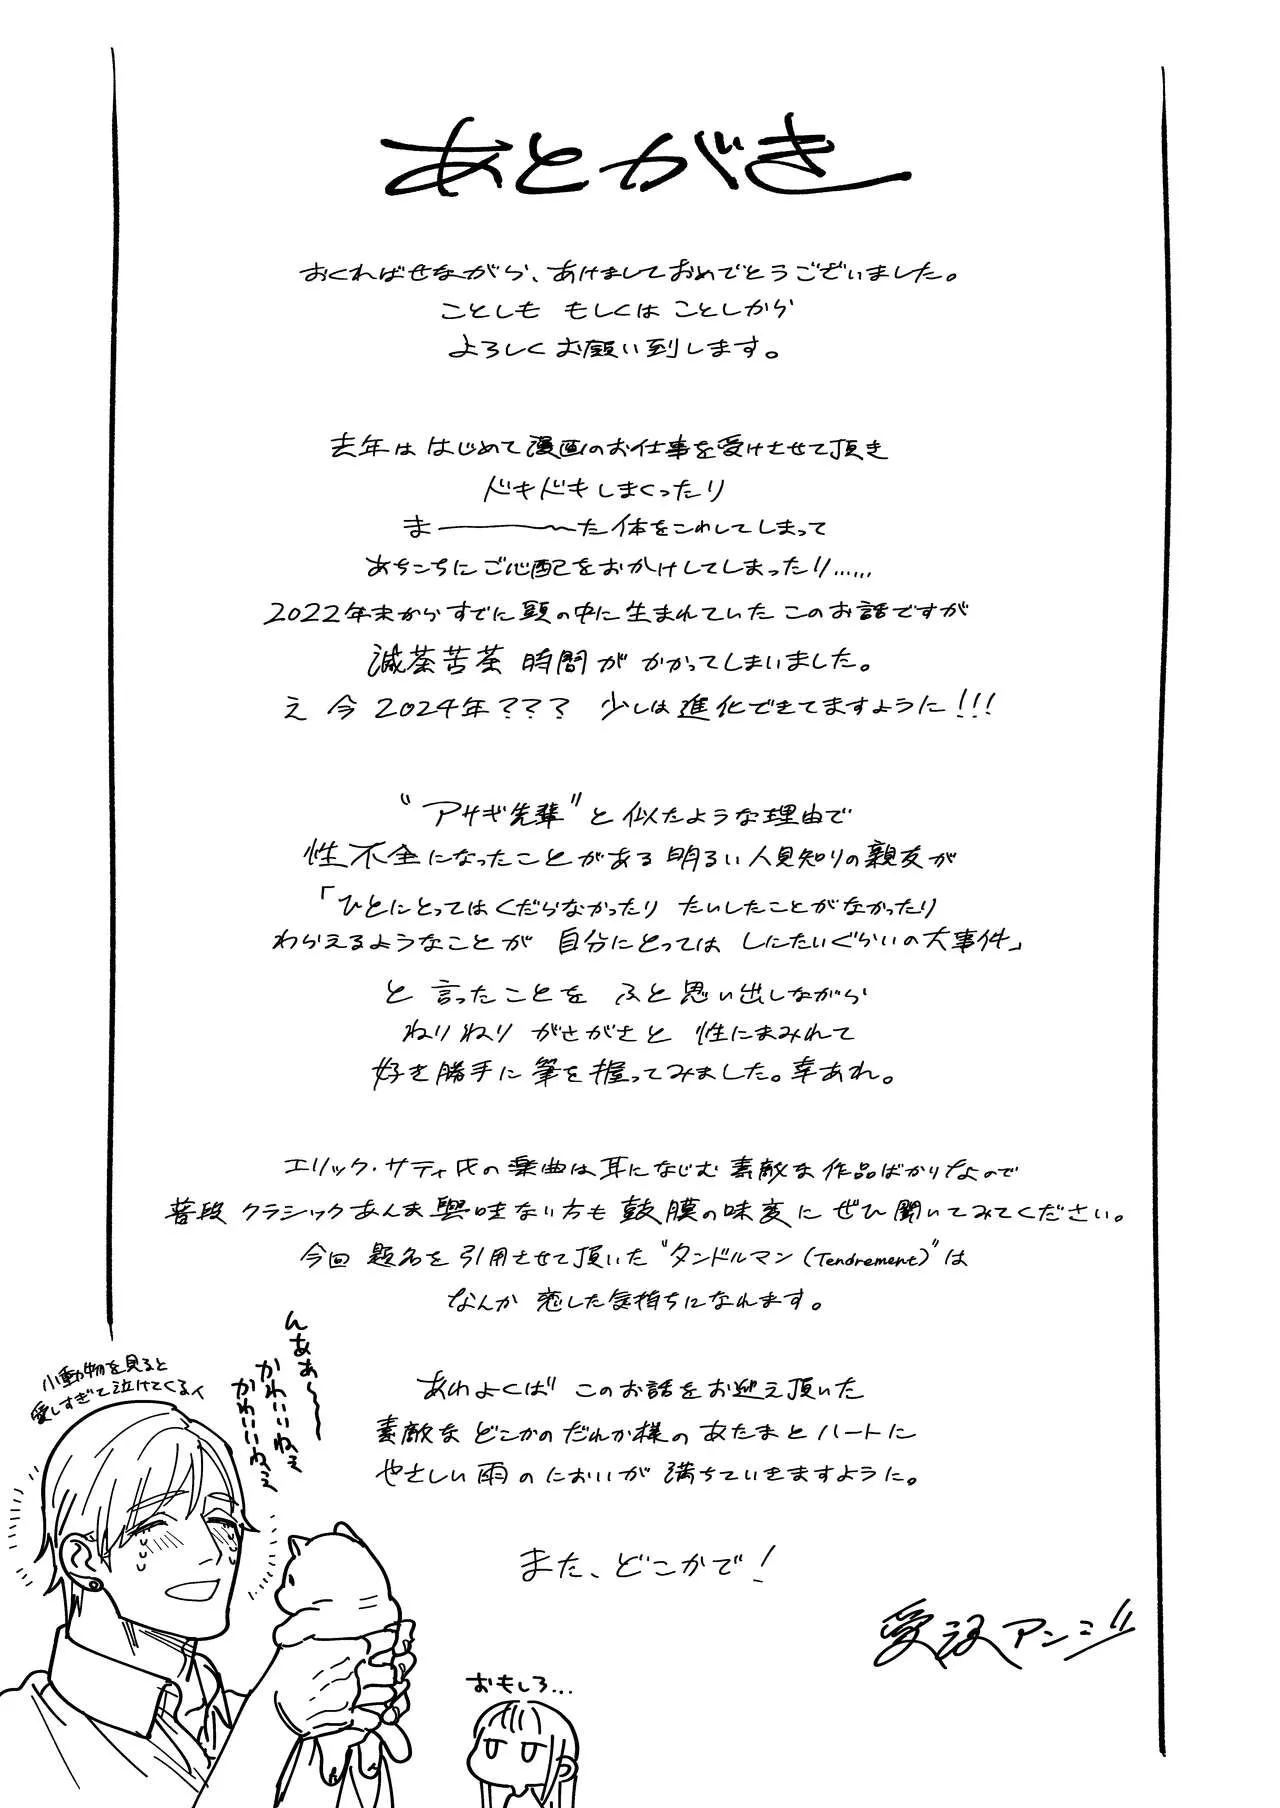 あとがき
おくればせながら、あけましておめでとうございました。
ことしも もしくは ことしから
よろしくお願い到します。
去年は はじめて漫画のお仕事を受けさせて頂き
ドキドキしまくったり
ま────〜た体をこわしてしまって
あちこちにご心配をおかけしてしまったり……
2022年末からすでに頭の中に生まれていたこのお話ですが
滅茶苦茶 時間が かかってしまいました。
え 今 2024年??? 少しは進化できてますように!!!
“アサギ先輩”と似たような理由で
性不全になったことがある明るい人見知りの親友が
「ひとにとってはくだらなかったり たいしたことがなかったり
わらえるようなことが 自分にとっては しにたいぐらいの大事件」
と 言ったことを ふと思い出しながら
ねりねり がさがさと 性にまみれて
好き勝手に筆を握ってみました。幸あれ。
エリック・サティ氏の楽曲は耳になじむ素敵な作品ばかりなので
普段 クラシックあんま興味ない方も鼓膜の味変に ぜひ聞いてみてください。
今回 題名を引用させて頂いた“タンドルマン(Tendrement)”は
なんか 恋した気持ちになれます。
あわよくば このお話をお迎え頂いた
素敵な どこかのだれか様のあたまとハートに
やさしい雨のにおいが満ちていきますように。
また、どこかで!
愛没アンジ
小動物を見ると
愛しすぎて泣けてくるイ
んあぁ〜
かわいいねぇ
かわいいねぇ
おもしろ...